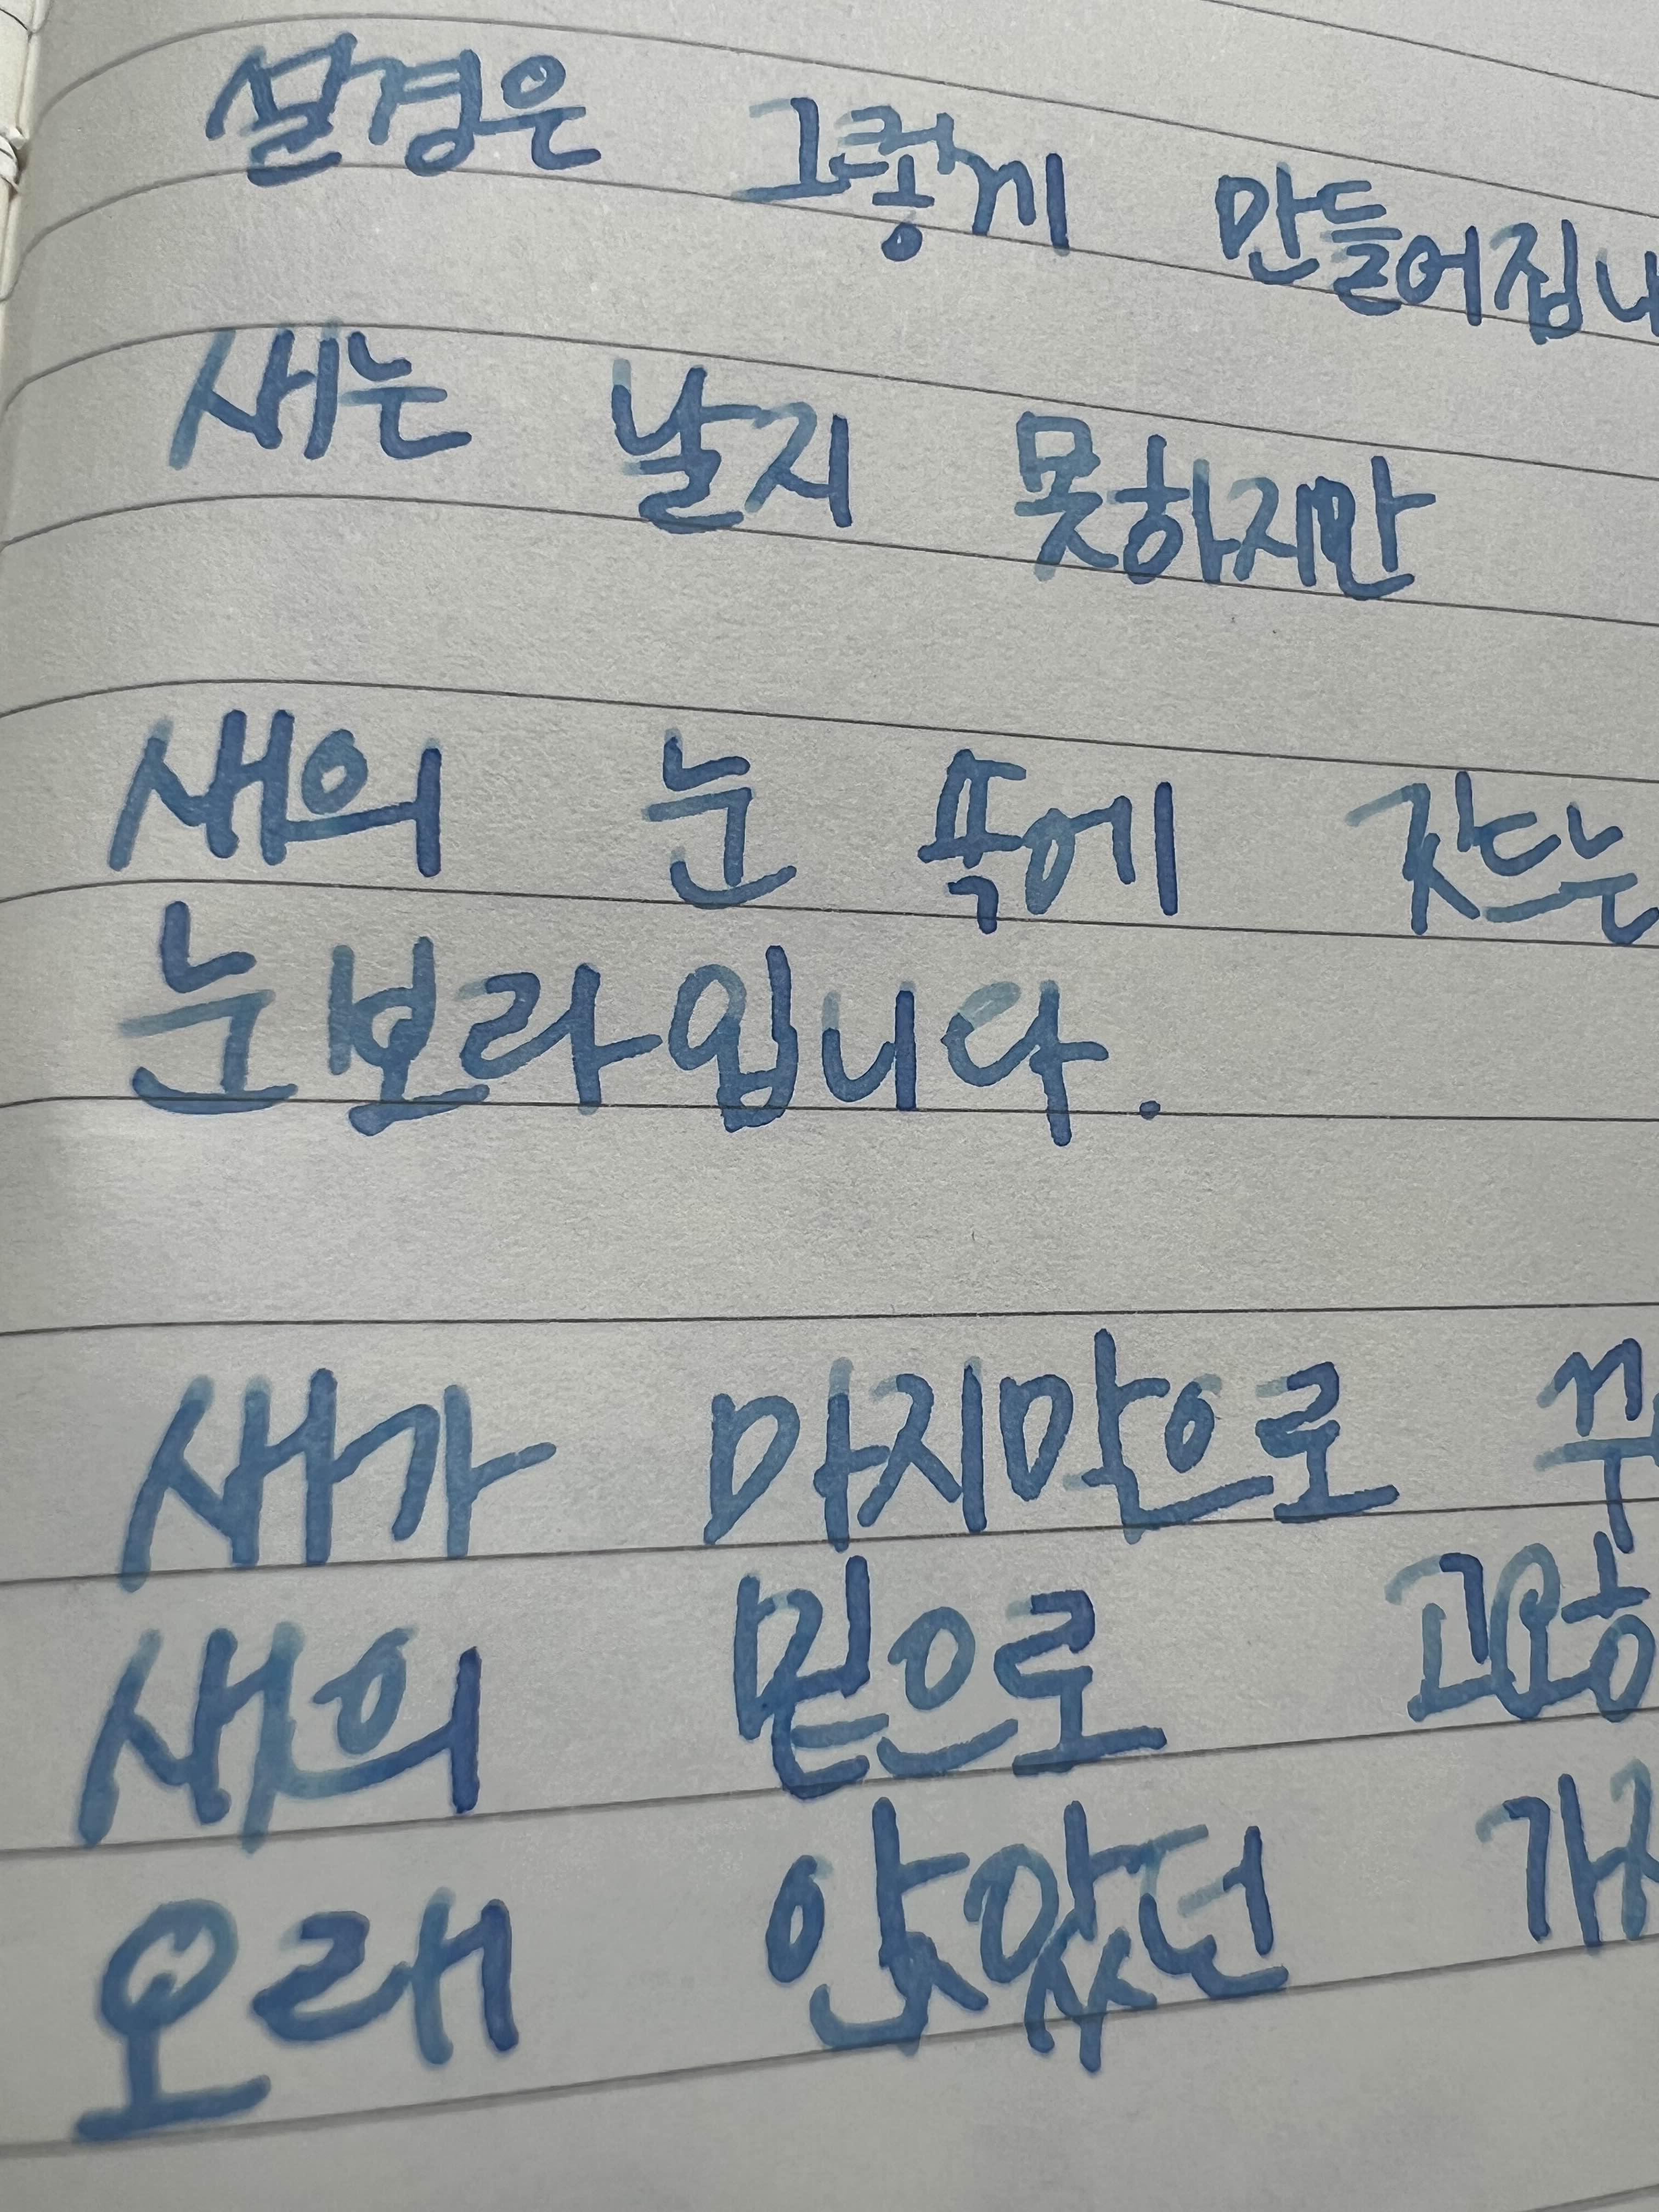 설경은 그렇게 만들어집니
새는 날지 못하지만
새의 눈 쪽에 잣는
눈보라입니다.
새가 마지막으로
새의 믿으로 고요
오래 앉았던